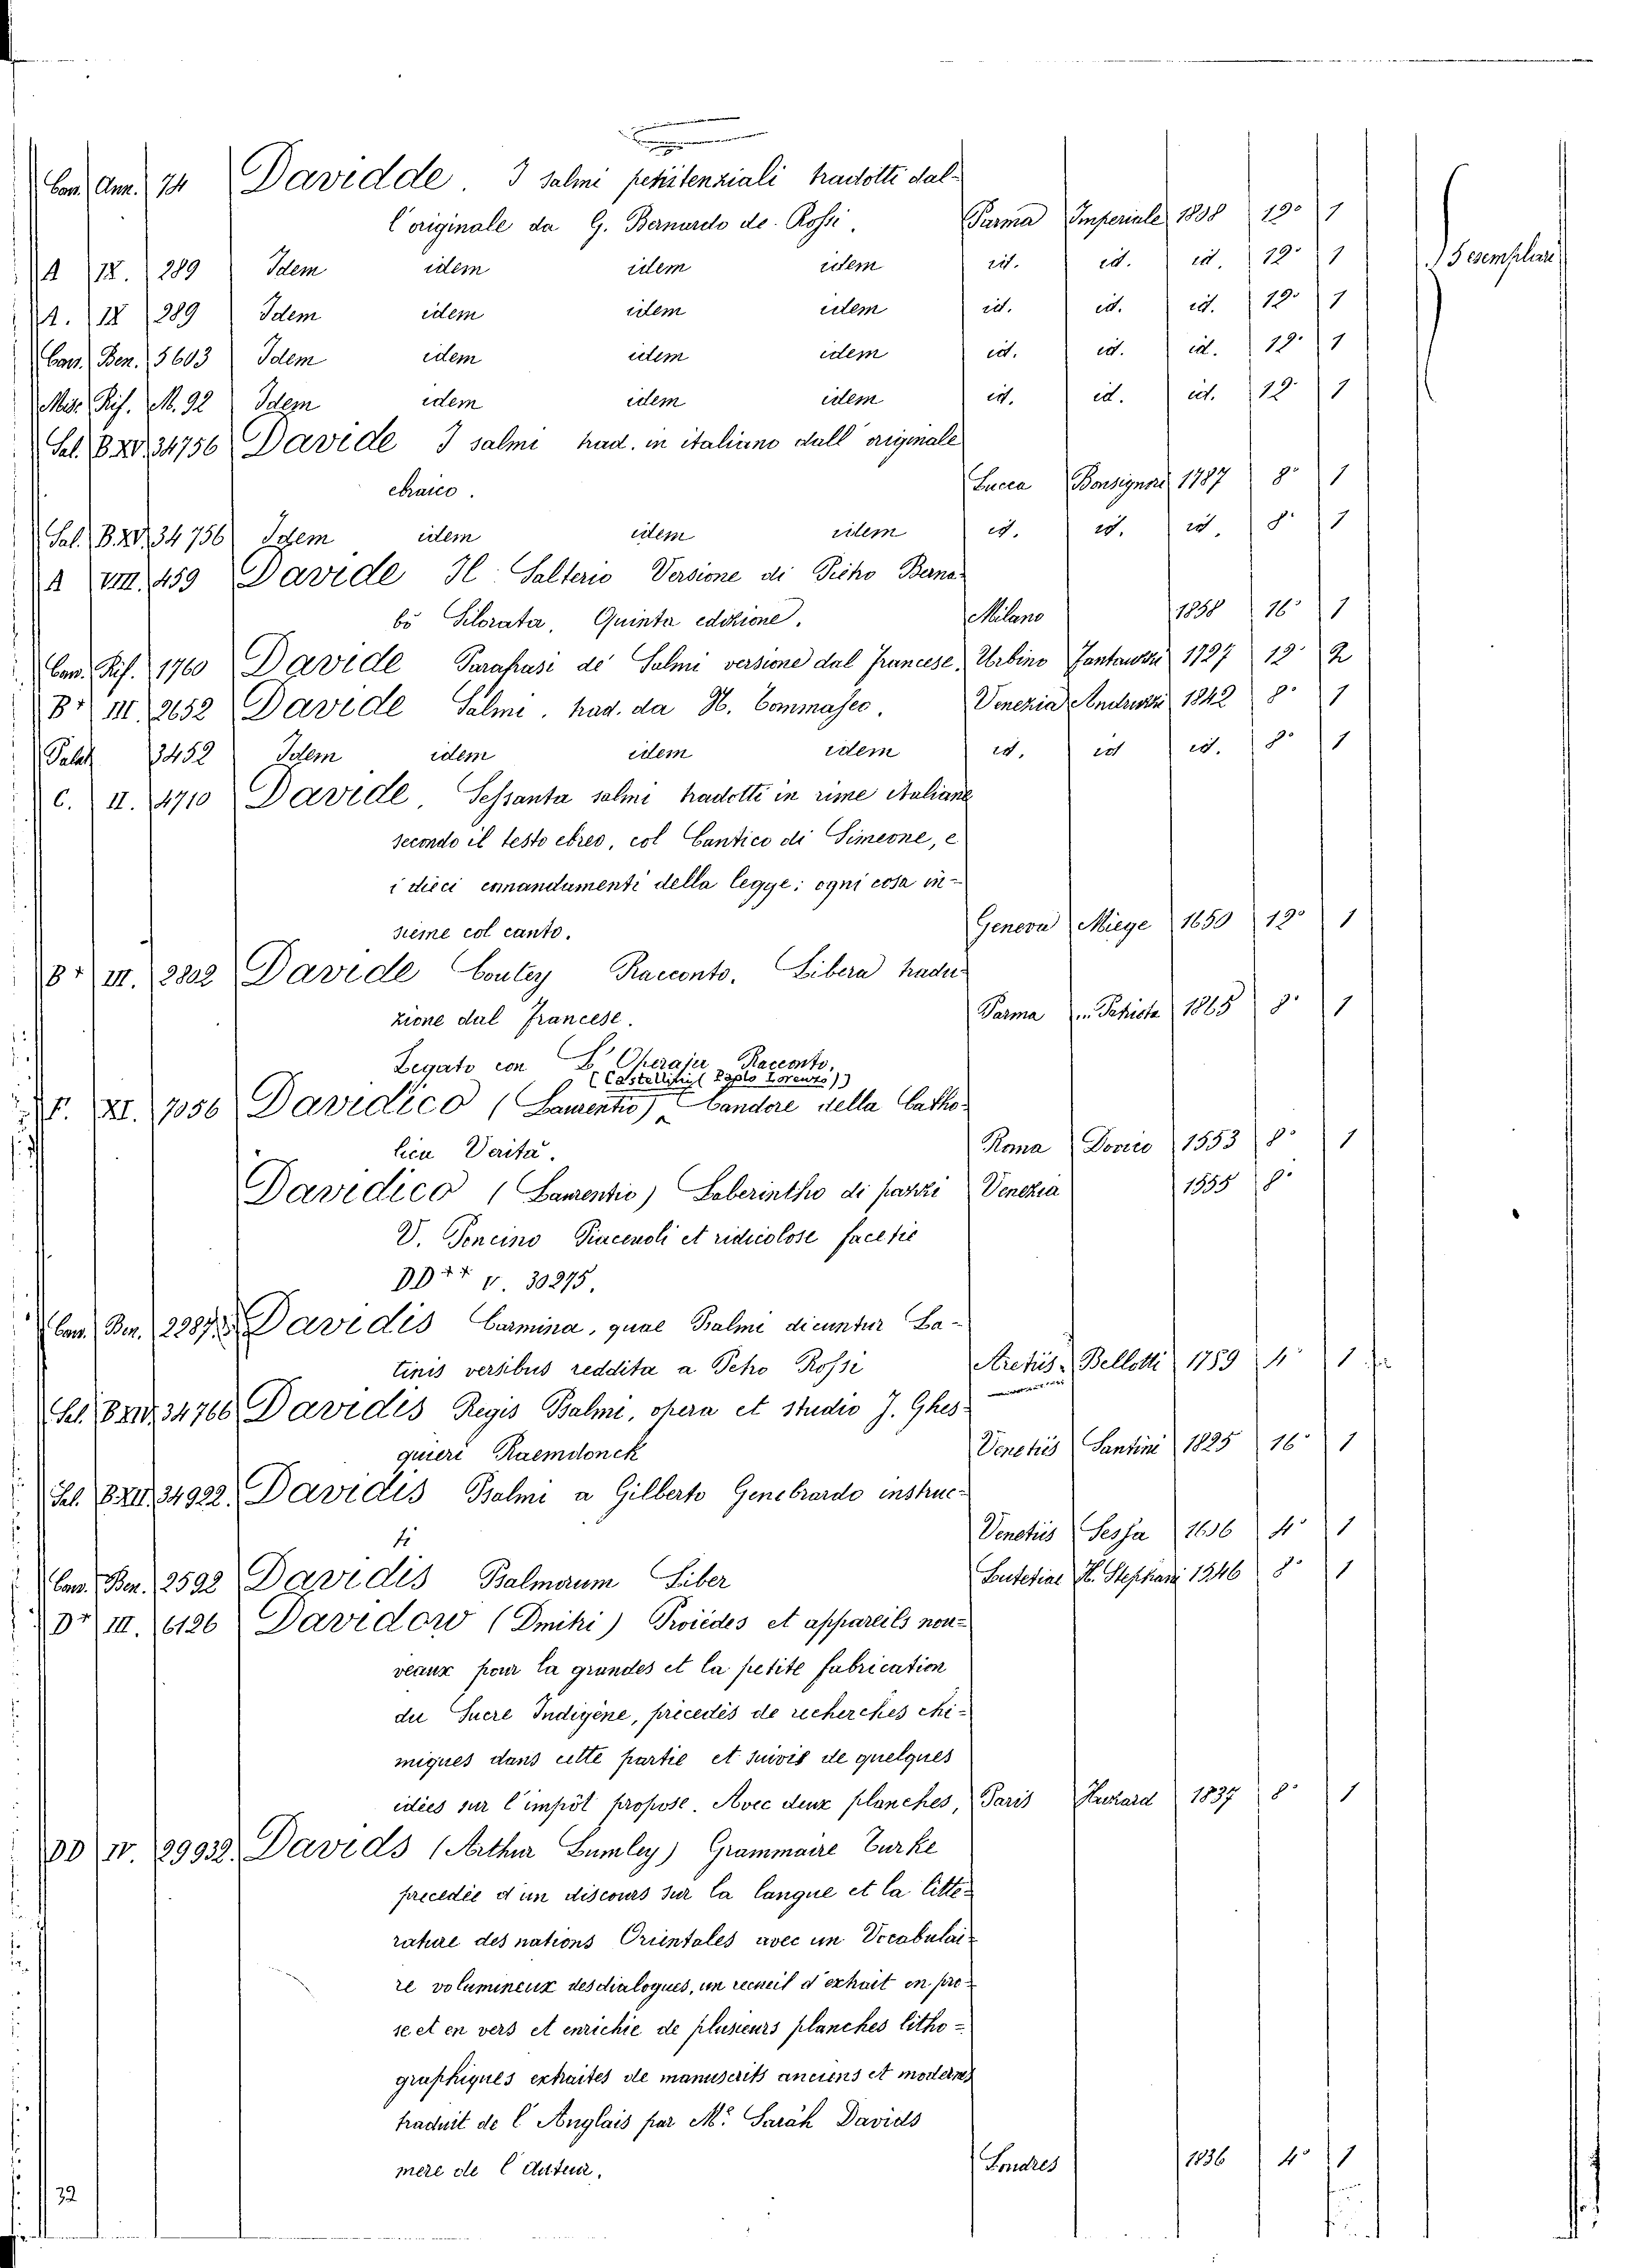 Con. Ann. 74 Davidde. I salmi penitenziali tradotti dal-
l'originale da G. Bernardo de Rossi. Parma Imperiale 1808 12° 1
A IX. 289 Idem idem idem idem id. id. id. 12° 1 5 esemplari
A. IX 289 Idem idem idem idem id. id. id. 12° 1
Con. Ben. 5603 Idem idem idem idem id. id. id. 12° 1
Misc. Rif. M. 92 Idem idem idem idem id. id. id. 12° 1
Sal. B.XV. 34756 Davide I salmi trad. in italiano dall'originale
ebraico. Lucca Bonsignori 1787 8° 1
Sal. B.XV. 34756 Idem idem idem idem id. id. id. 8° 1
A VIII. 459 Davide Il Salterio Versione di Pietro Berna-
bò Silorata, Quinta edizione. Milano 1858 16° 1
Con. Rif. 1760 Davide Parafrasi de' Salmi versione dal francese. Urbino 1727 12° 2
B+ III. 2652 Davide Salmi. trad. da N. Tommaseo. Venezia 1842 8° 1
Palat 3452 Idem idem idem idem id. id id. 8° 1
C. II. 4710 Davide. Sessanta salmi tradotti in rime italiane
secondo il testo ebreo, col Cantico di Simeone, e
i dieci comandamenti della legge: ogni cosa in-
sieme col canto. Geneva Miege 1650 12° 1
B+ III. 2802 Davide Contey Racconto. Libera tradu-
zione dal francese. Parma 1865 8° 1
Legato con L'Operaja Racconto.
(Castellini (Paolo Lorenzo))
F. XI. 7056 Davidico (Laurentio) Candore della Catho-
lica Verità. Roma Dorico 1553 8° 1
Davidico (Laurentio) Laberintho di pazzi Venezia 1555 8°
V. Poncino Piacevoli et ridicolose facetie
DD++ V. 30275.
Con. Ben. 2287 Davidis Carmina, quae Psalmi dicuntur La-
tinis versibus reddita a Petro Rossi Aretiis Bellotti 1759 4° 1
Sal. B.XIV. 34766 Davidis Regis Psalmi, opera et studio J. Ghes-
quieri Raemdonck Venetiis Santini 1825 16° 1
Sal. B.XII. 34922. Davidis Psalmi a Gilberto Genebrardo instruc-
ti Venetiis Sessa 1606 4° 1
Con. Ben. 2592 Davidis Psalmorum Liber Lutetiae H. Stephani 1546 8° 1
D+ III. 6126 Davidow (Dmitri) Proiédes et appareils nou-
veaux pour la grandes et la petite fabrication
du Sucre Indigène, précedés de recherches chi-
miques dans cette partie et suivis de quelques
idées sur l'impôt propose. Avec deux planches, Paris Huzard 1837 8° 1
DD IV. 29932. Davids (Arthur Lumley) Grammaire Turke
precedée d'un discours sur la langue et la litte-
rature des nations Orientales avec un Vocabulai-
re volumineux des dialogues, un recueil d'extrait en pro-
se et en vers et enrichie de plusieurs planches litho-
graphiques extraites de manuscrits anciens et modernes
traduit de l'Anglais par Mr. Sarah Davids
mere de l'Auteur. Londres 1836 4° 1
32